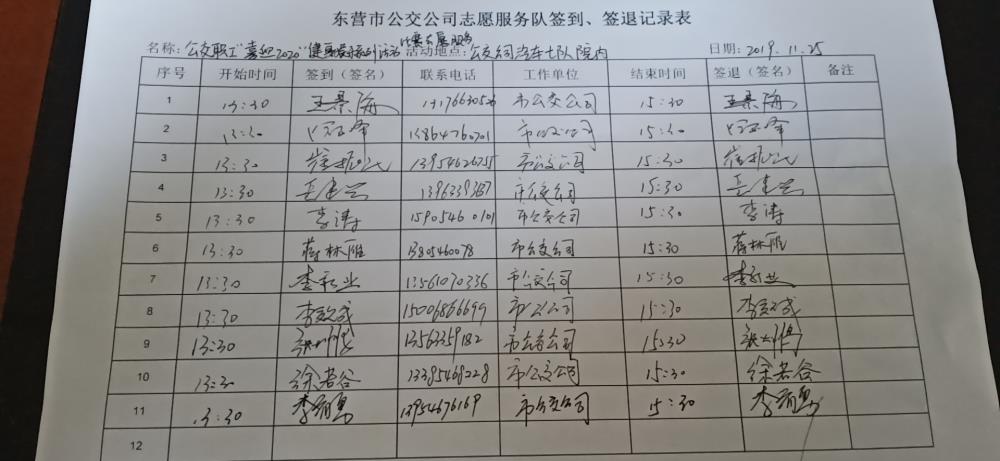 东营市公交公司志愿服务队签到、签退记录表
名称：公交职工"喜迎2020"健 活动地点：公交公司汽车七队院内 日期：2019.11.25
序号 开始时间 签到（签名） 联系电话 工作单位 结束时间 签退（签名） 备注
1 13:30 王景海 市公交公司 15:30 王景海
2 13:30 13864760701 市公交公司 15:30
3 13:30 13954626755 市公交公司 15:30
4 13:30 市公交公司 15:30
5 13:30 李涛 15905460101 市公交公司 15:30 李涛
6 13:30 蒋林雁 13805460078 市公交公司 15:30 蒋林雁
7 13:30 13561070336 市公交公司 15:30
8 13:30 李效成 15006866699 市公交公司 15:30 李效成
9 13:30 13563359182 市公交公司 15:30
10 13:30 徐若谷 13395469228 市公交公司 15:30 徐若谷
11 13:30 13954676169 市公交公司 15:30
12